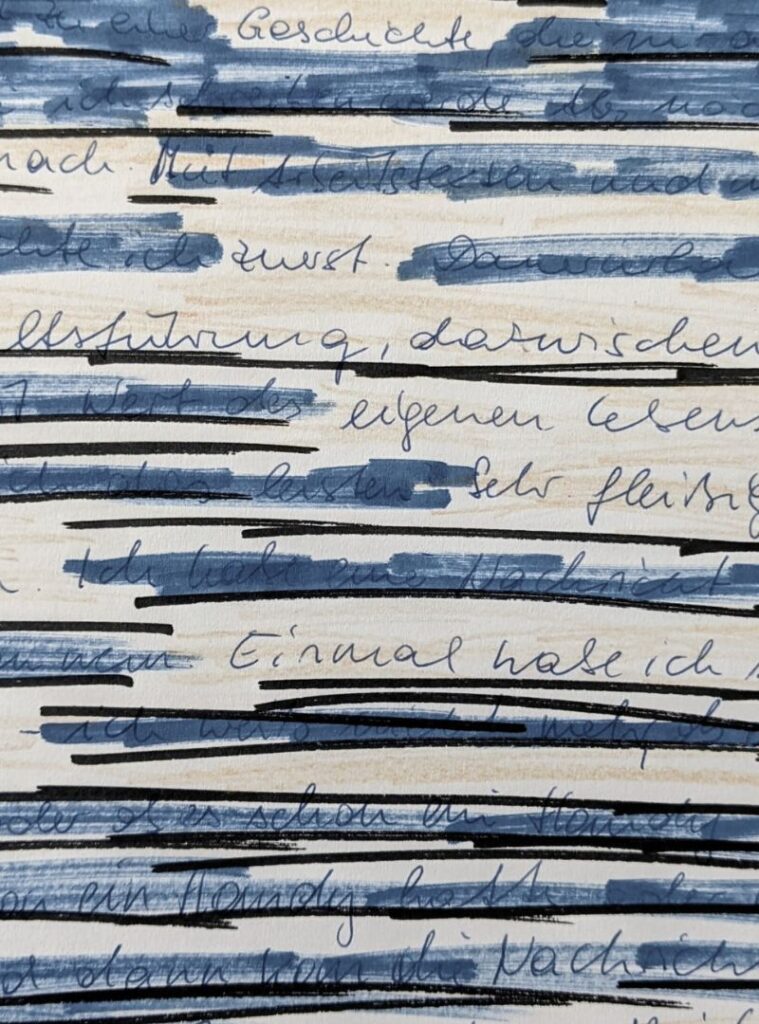 zu einer Geschichte, die mir
ich schreiben werde
nach. Mit Arbeitstexten und
ich zuerst.
ltsführung, dazwischen
Wert des eigenen Lebens
ich etwas leisten. Sehr fleißig
Ich habe eine Nachricht
Einmal habe ich
– ich weiß nicht mehr, ob
oder ob es schon ein Handy
ein Handy hatte, oder
dann kam die Nachricht